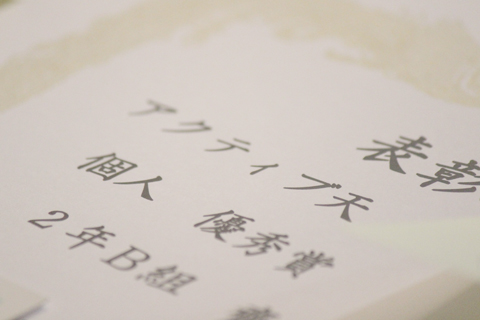 表彰
アクティブ天
個人 優秀賞
2年B組